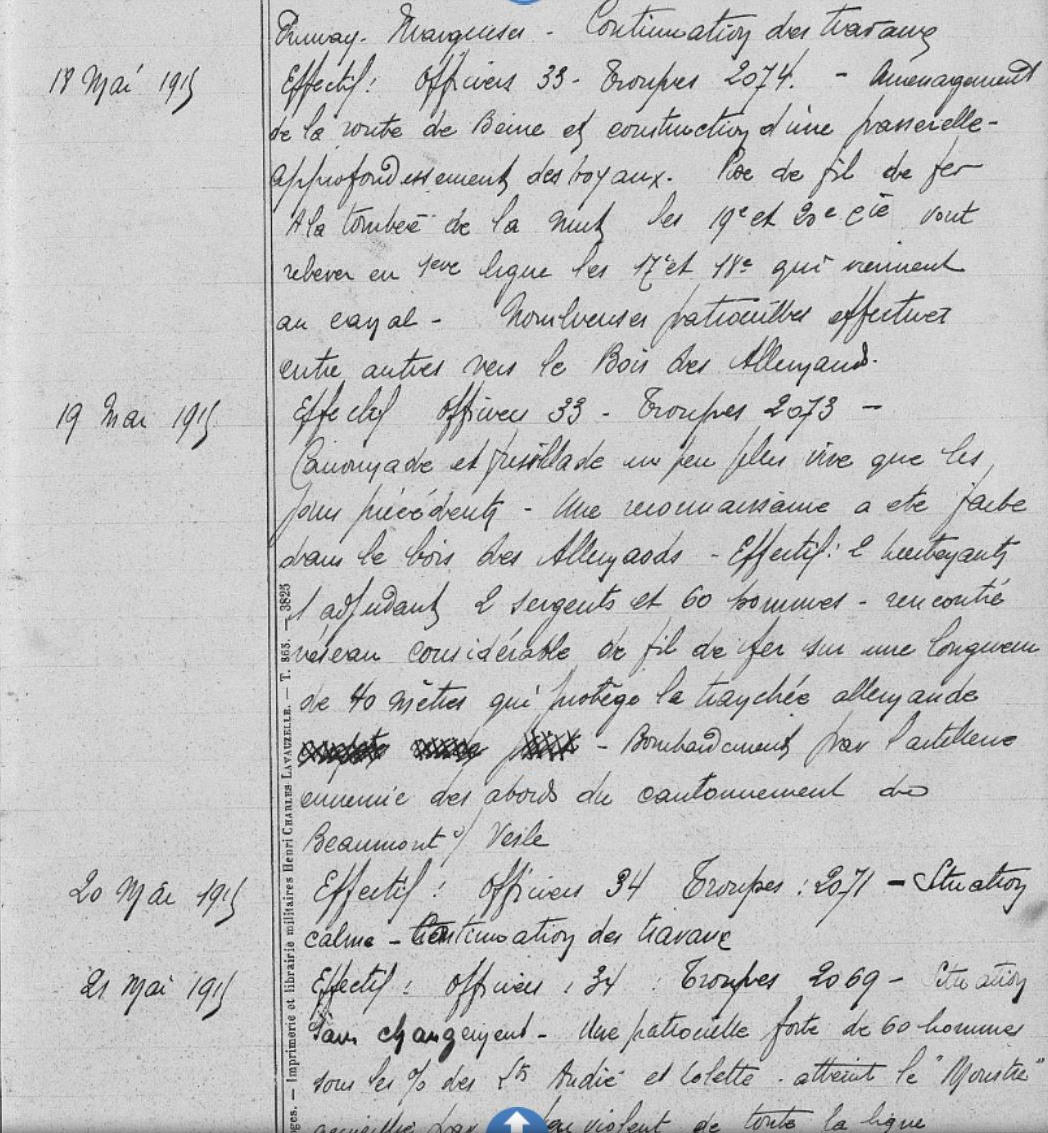 Prunay. Marquises - Continuation des travaux
18 Mai 1915 Effectif : Officiers 33 - Troupes 2074. - Aménagement
de la route de Beine et construction d'une passerelle -
approfondissement des boyaux. Pose de fil de fer
A la tombée de la nuit les 19e et 20e Cie vont
relever en 1ere ligne les 17e et 18e qui viennent
au canal - Nombreuses patrouilles effectuées
entre autres vers le Bois des Allemands.
19 Mai 1915 Effectif Officiers 33 - Troupes 2073 -
Canonnade et fusillade un peu plus vive que les
jours précédents - Une reconnaissance a été faite
dans le bois des Allemands - Effectif : 2 lieutenants
1 adjudant 2 sergents et 60 hommes - rencontré
réseau considérable de fil de fer sur une longueur
de 40 mètres qui protège la tranchée allemande
- Bombardement par l'artillerie
ennemie des abords du cantonnement de
Beaumont s/ Vesle
20 Mai 1915 Effectif : Officiers 34 Troupes : 2071 - Situation
calme - Continuation des travaux
21 Mai 1915 Effectif : Officiers : 34 : Troupes 2069 - Situation
sans changement - Une patrouille forte de 60 hommes
sous les % des Lts André et Colette . atteint le "Monstre"
accueillie par feu violent de toute la ligne
Imprimerie et librairie militaires Henri CHARLES-LAVAUZELLE. — T. 863. — 3825